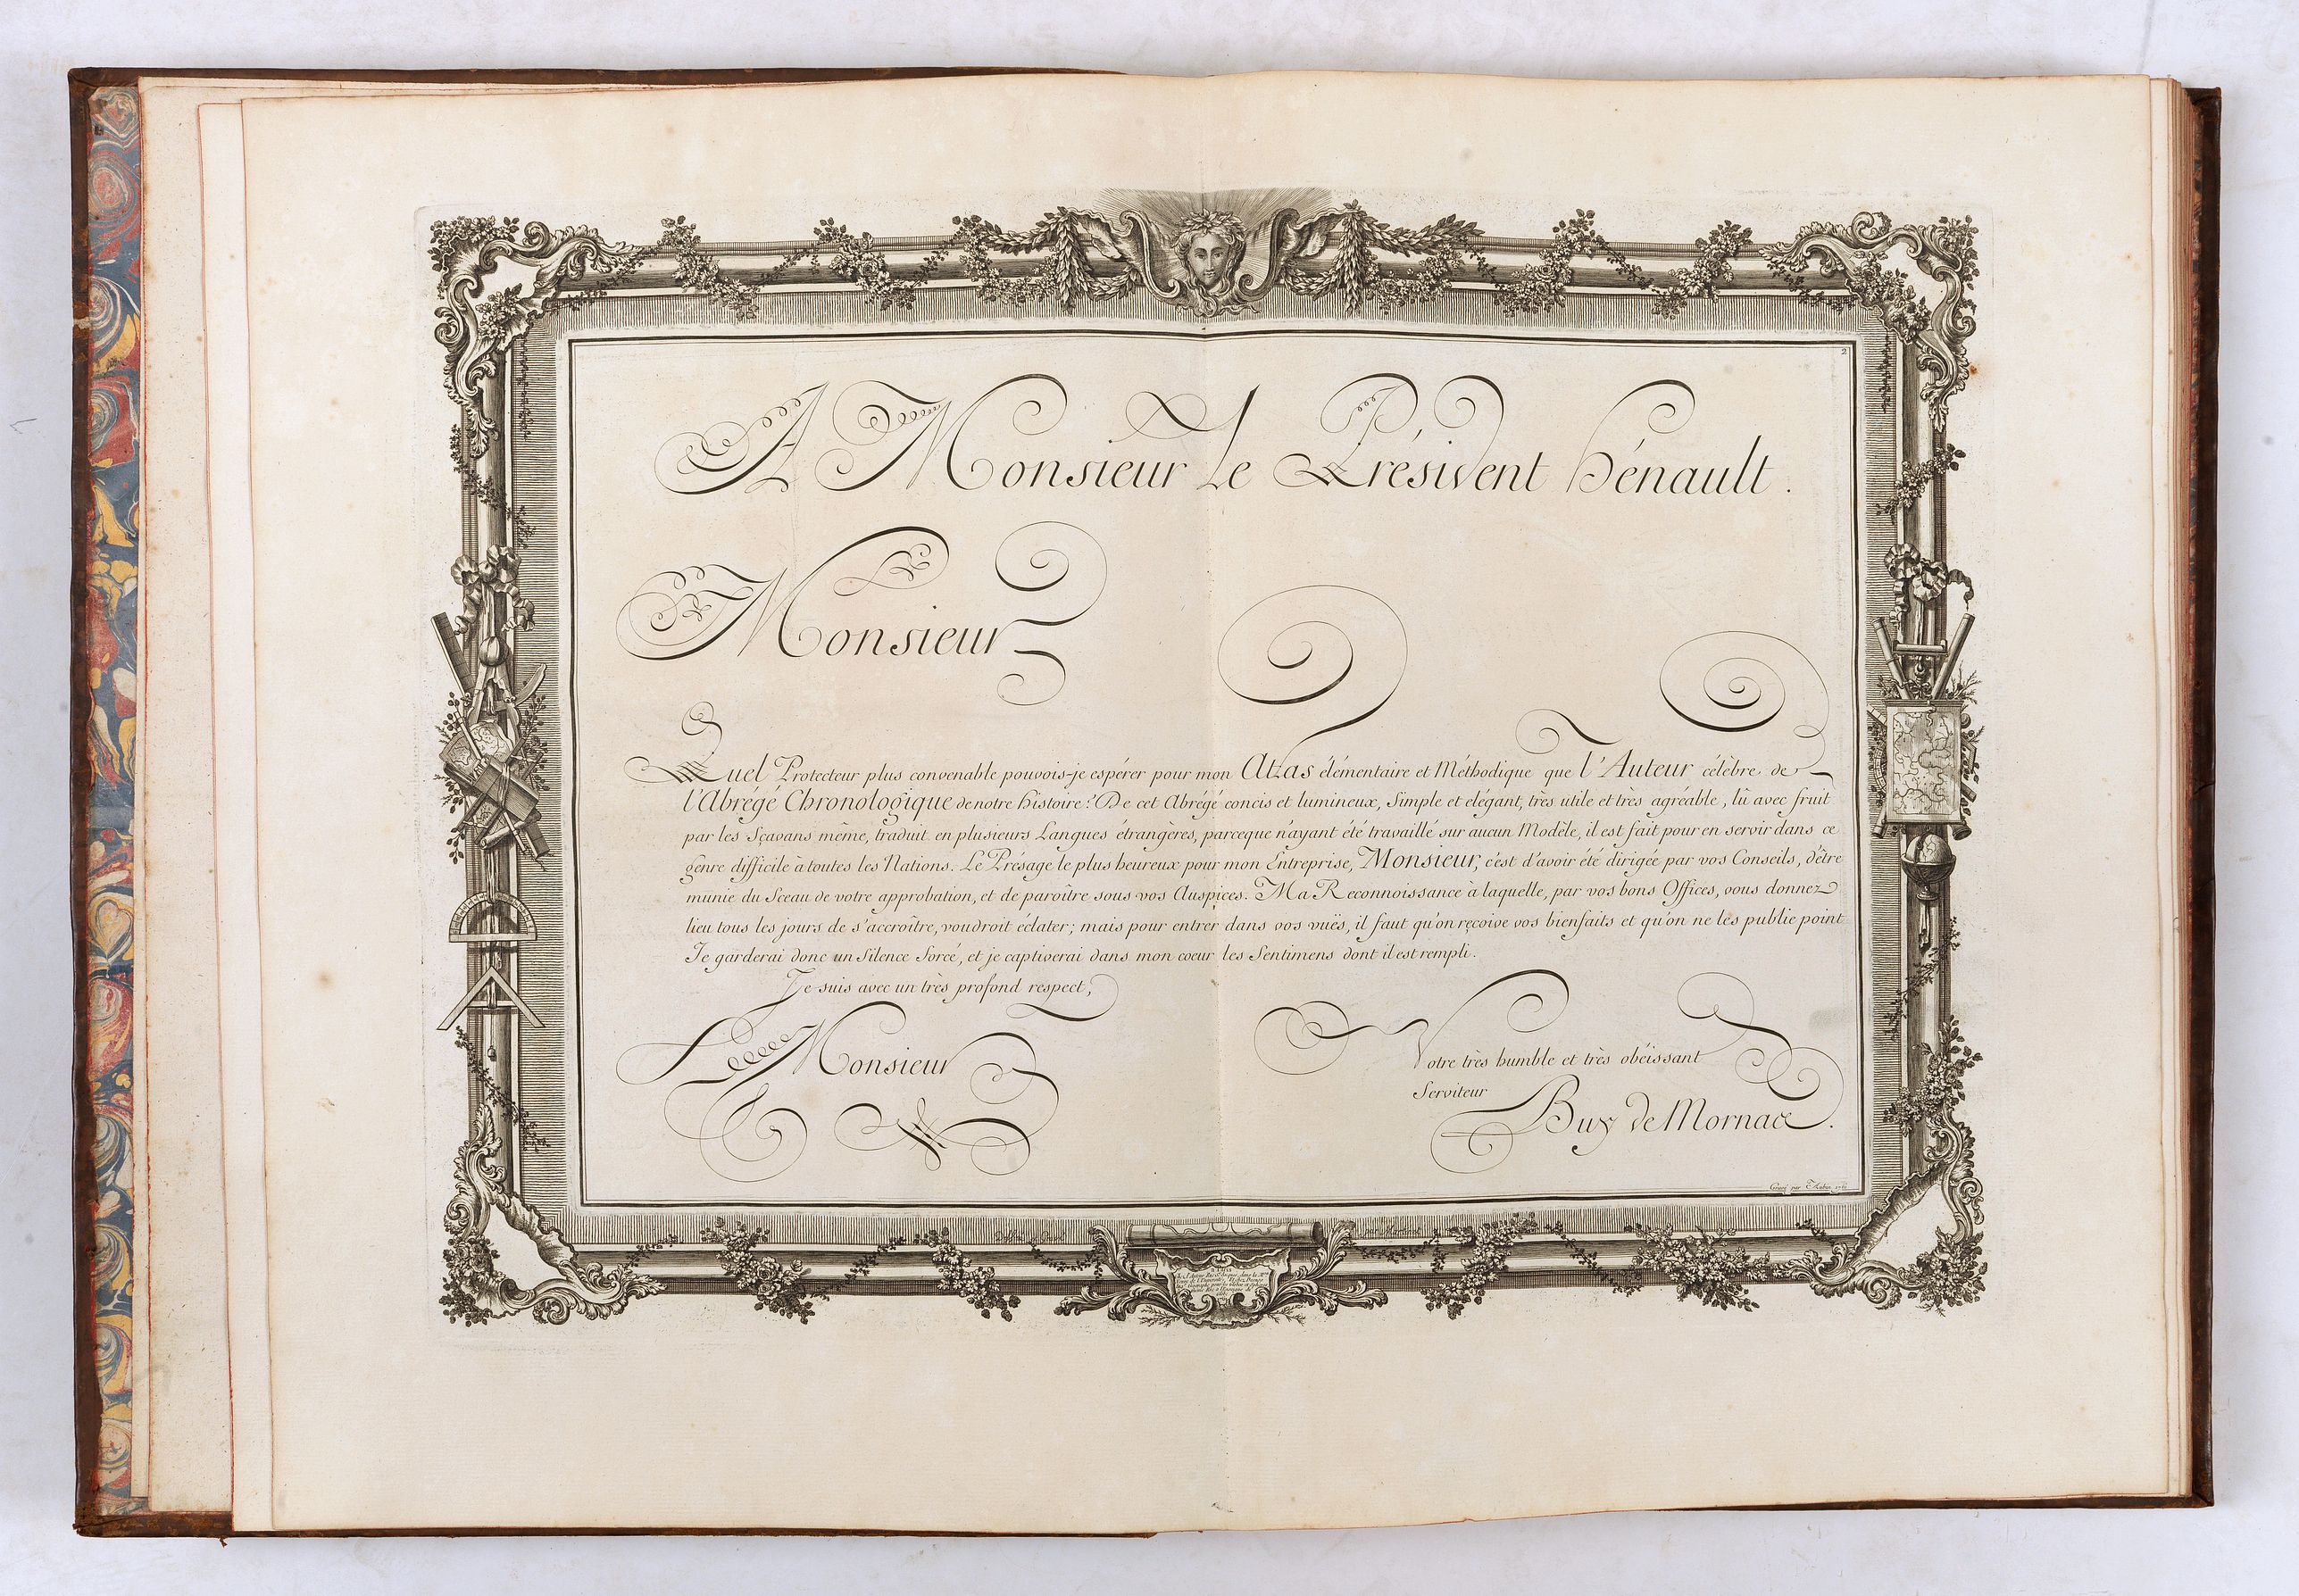 2
A Monsieur Le Président hénault.
Monsieur
Quel Protecteur plus convenable pouvois-je espérer pour mon Atlas élémentaire et Méthodique que l'Auteur célèbre de
l'Abrégé Chronologique de notre histoire? De cet Abrégé concis et lumineux, simple et elégant, très utile et très agréable, lû avec fruit
par les Sçavans même, traduit en plusieurs Langues étrangères, parceque n'ayant été travaillé sur aucun Modèle, il est fait pour en servir dans ce
genre difficile à toutes les Nations. Le Présage le plus heureux pour mon Entreprise, Monsieur, c'est d'avoir été dirigée par vos Conseils, d'être
munie du Sceau de votre approbation, et de paroître sous vos Auspices. Ma Reconnoissance à laquelle, par vos bons Offices, vous donnez
lieu tous les jours de s'accroître, voudroit éclater; mais pour entrer dans vos vuës, il faut qu'on reçoive vos bienfaits et qu'on ne les publie point
Je garderai donc un silence forcé, et je captiverai dans mon cœur les Sentimens dont il est rempli.
Je suis avec un très profond respect,
Monsieur
Votre très humble et très obéissant
Serviteur
Buy de Mornas.
Gravé par